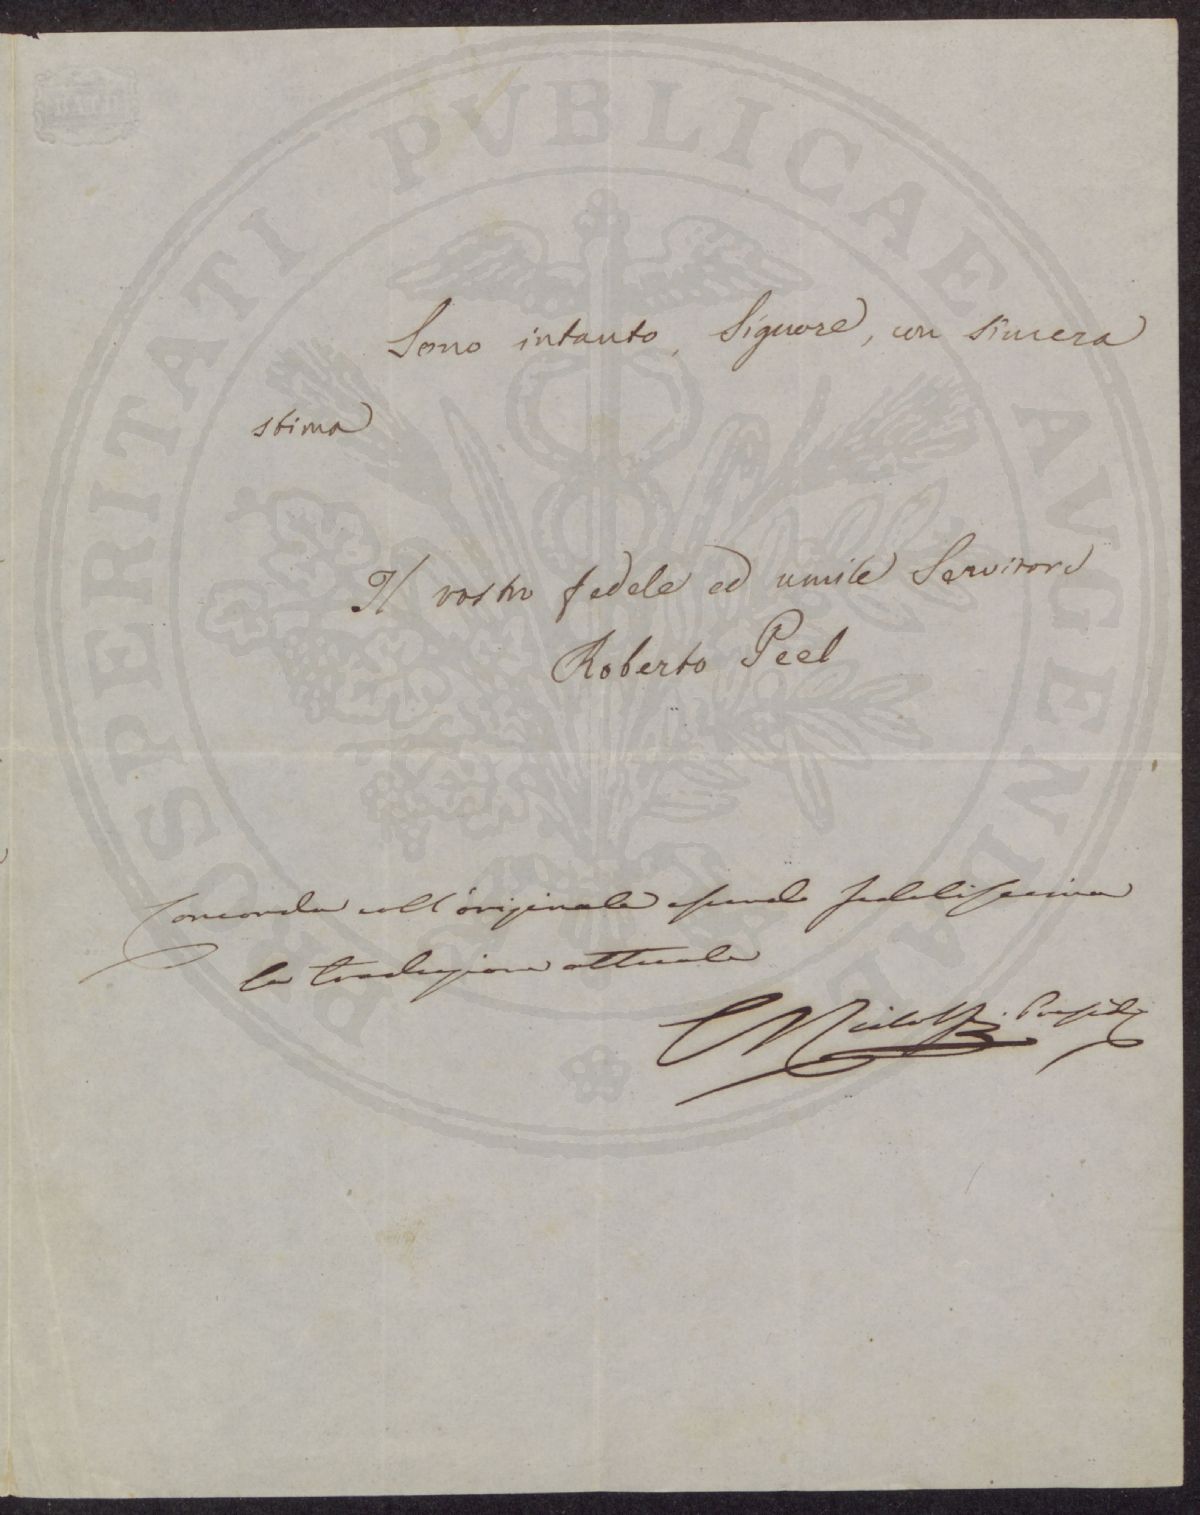 PROSPERITATI PVBLICAE AVGENDAE
Sono intanto, Signore, con sincera
stima
Il vostro fedele ed umile Servitore
Roberto Peel
Concorda coll'originale essendo fedelissima
la traduzione attuale
C Ridolfi Presid